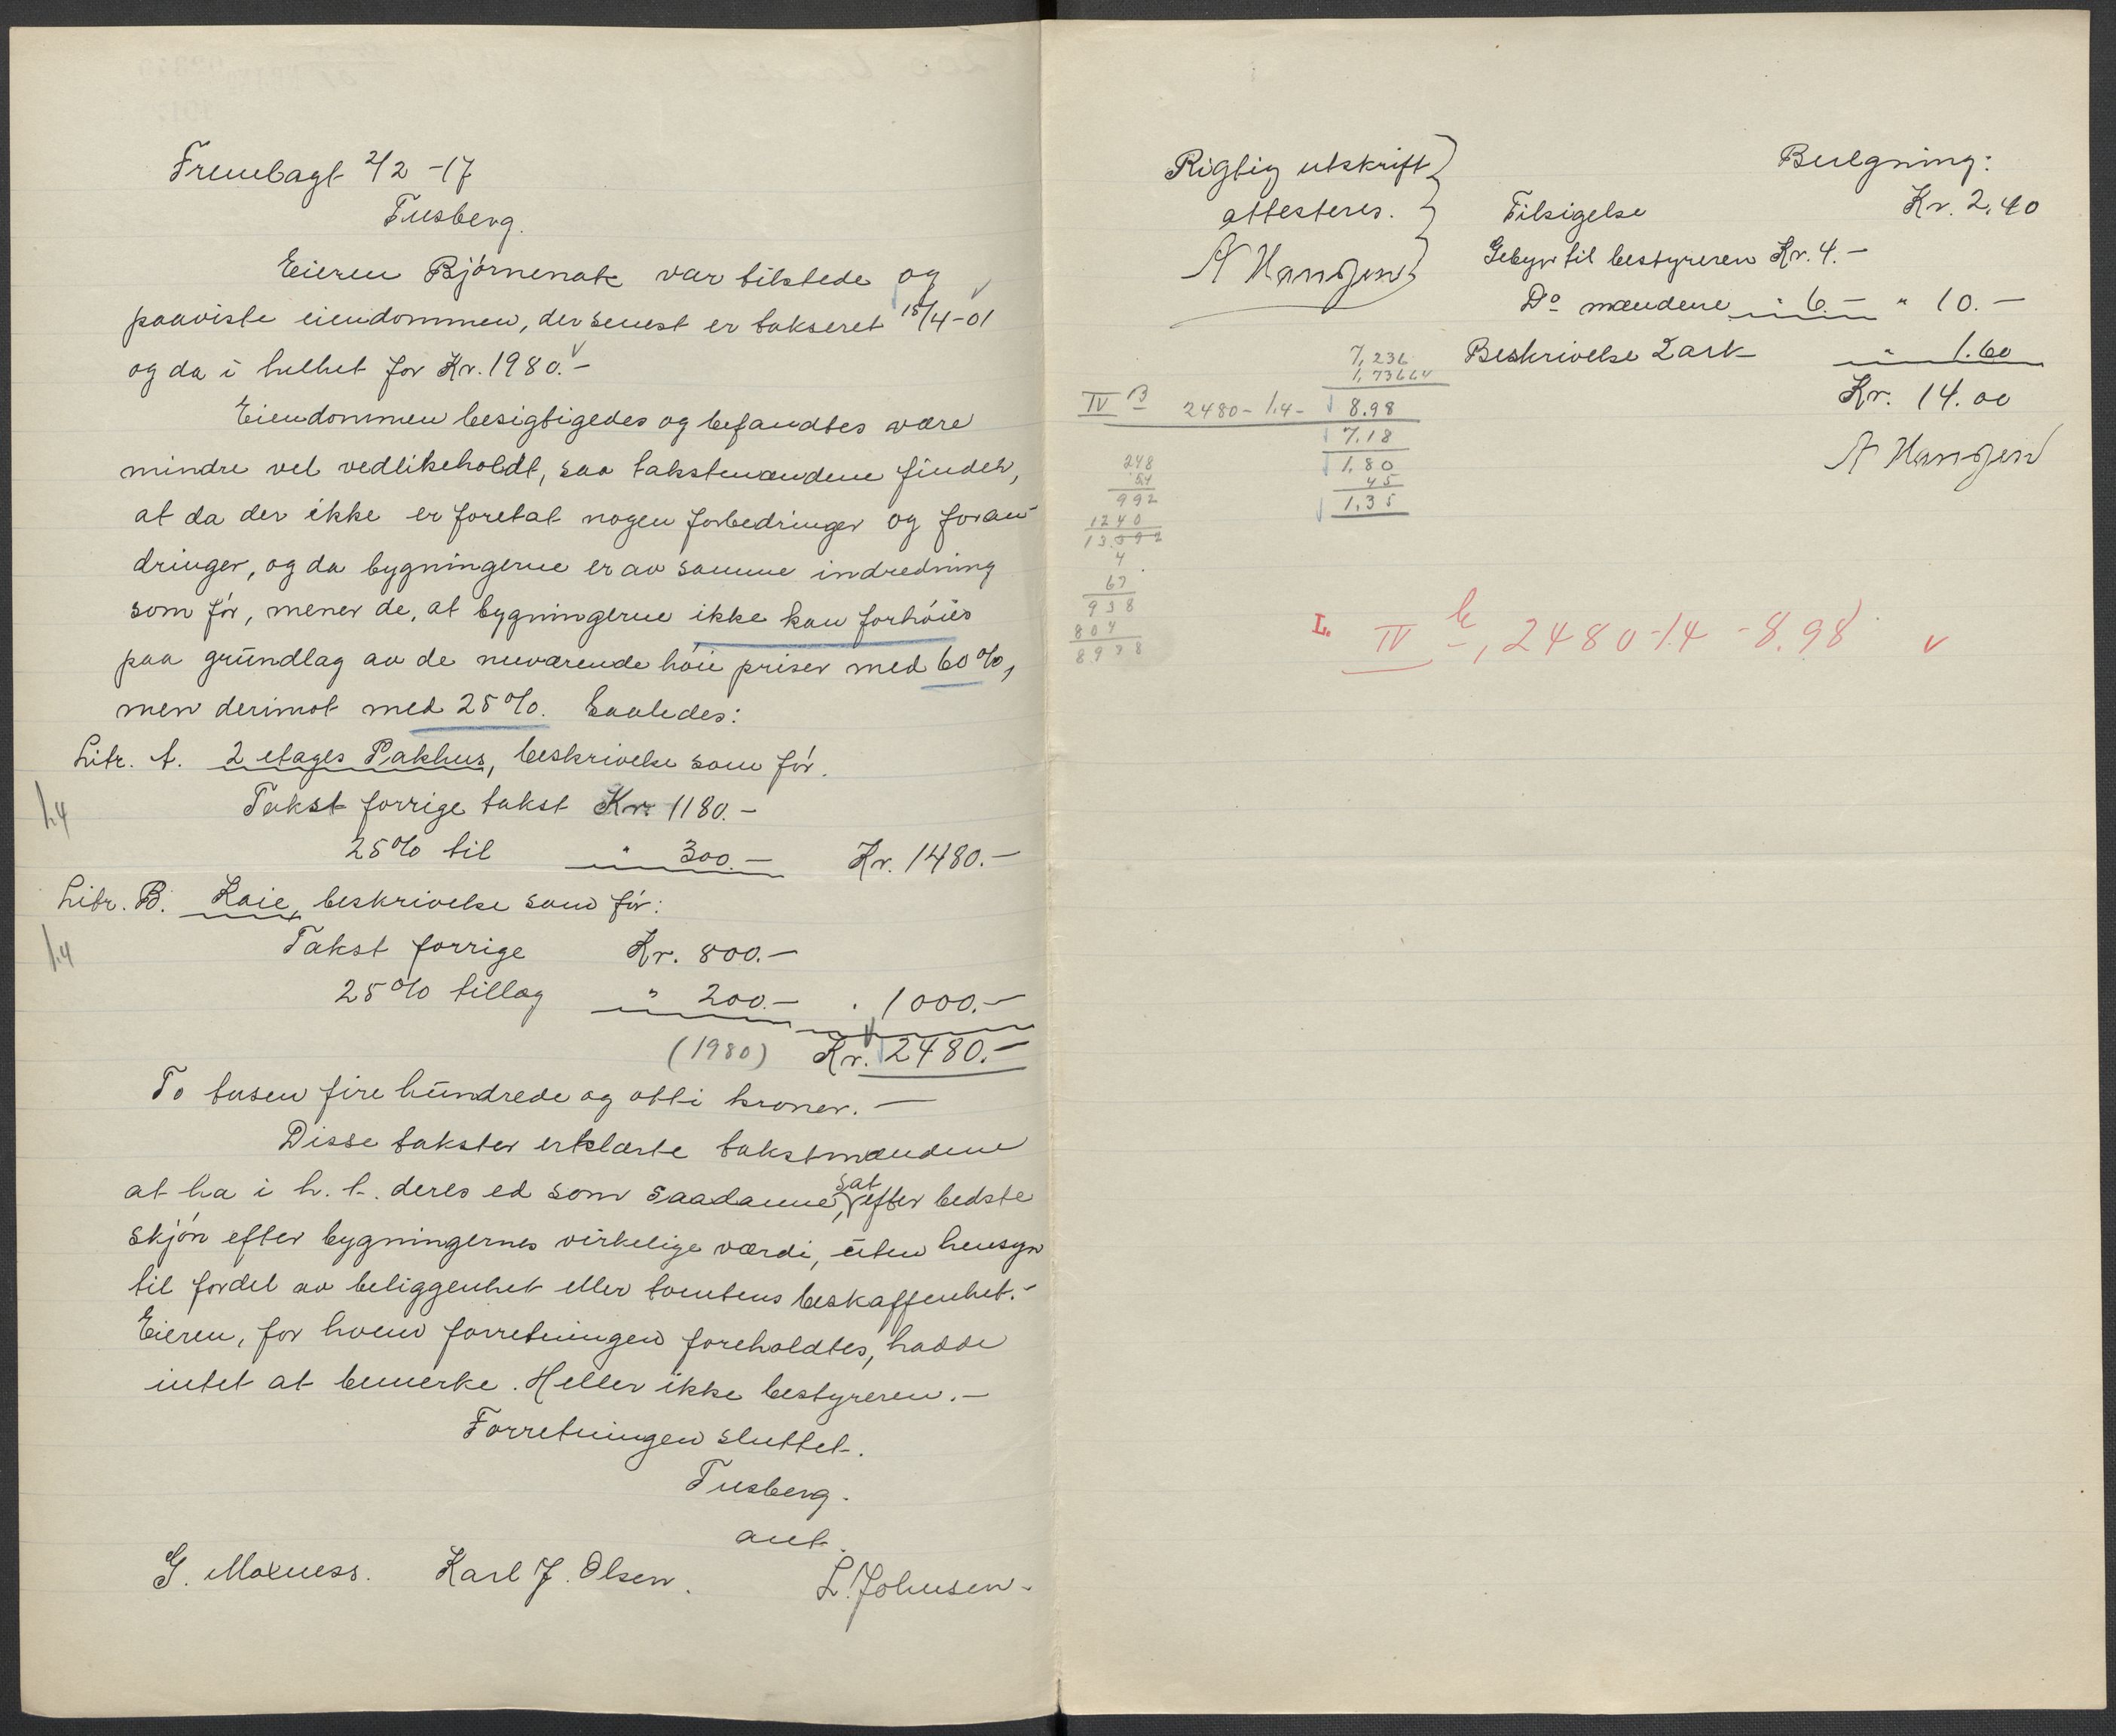 Frembagt 2/2 -17
Tusberg.
Eieren Bjørnenak var tilstede og
paaviste eiendommen, der senest er takseret 15/4-01
og da i helhet for Kr. 1980.-
Eiendommen besigtigedes og befandtes være
mindre vel vedlikeholdt, saa takstmændene finder,
at da der ikke er foretat nogen forbedringer og foran-
dringer, og da bygningerne er av samme indredning
som før, mener de, at bygningerne ikke kan forhøies
paa grundlag av de nuværende høie priser med 60%,
men derimot med 25%. Saaledes:
Litr. A. 2 etages Pakhus, beskrivelse som før.
1.4 Takst forrige takst Kr. 1180.-
25% til " 300.- Kr. 1480.-
Litr. B. Kaie, beskrivelse som før:
1.4 Takst forrige Kr. 800.-
25% tillæg " 200.- " 1000.-
(1980) Kr. 2480.-
To tusen fire hundrede og otti kroner.-
Disse takster erklærte takstmændene
at ha i h. t. deres ed som saadanne, sat efter bedste
skjøn efter bygningernes virkelige værdi, uten hensyn
til fordel av beliggenhet eller tomtens beskaffenhet.-
Eieren, for hvem forretningen foreholdtes, hadde
intet at bemerke. Heller ikke bestyreren.-
Forretningen sluttet.
Tusberg.
aut.
G. Moxness. Karl J. Olsen. L. Johnsen-
Rigtig utskrift
attesteres.
A Hansen
Beregning:
Tilsigelse Kr. 2,40
Gebyr til bestyreren Kr. 4.-
Do mændene " 6.- " 10.-
Beskrivelse 2 ark " 1.60
Kr. 14.00
A Hansen
7,236
1,73664
IV B 2480 - 1.4 - 8.98
7.18
1,80
45
1,35
248
54
992
1240
13.392
4
67
938
804
8978
L. IV b, 2480 - 1.4 - 8.98